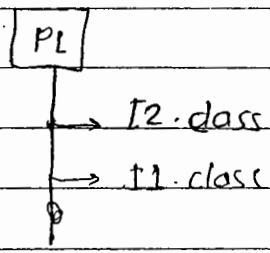 P1
I2.class
I1.class